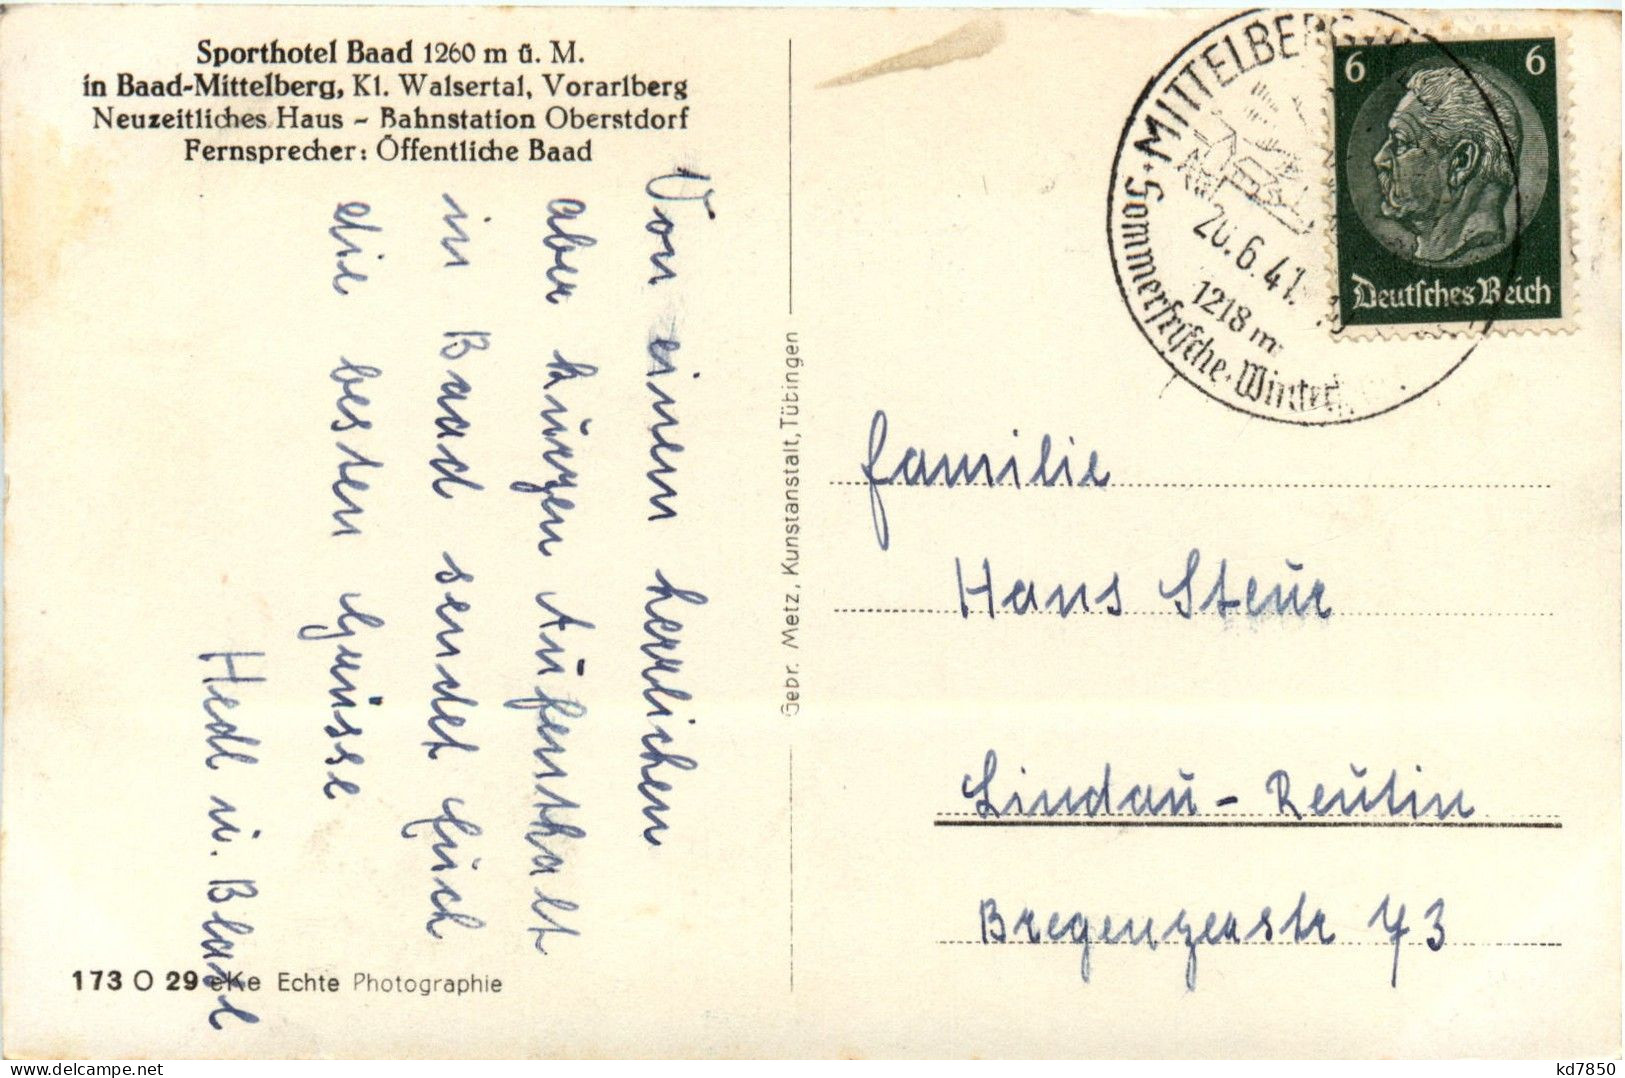 Sporthotel Baad 1260 m ü. M.
in Baad-Mittelberg, Kl. Walsertal, Vorarlberg
Neuzeitliches Haus - Bahnstation Oberstdorf
Fernsprecher: Öffentliche Baad
Von einem herrlichen
aber kurzen Aufenthalt
in Baad sendet Euch
die besten Grüsse
Hedl u. Blasl
173 O 29 eKe Echte Photographie
Gebr. Metz, Kunstanstalt, Tübingen
MITTELBERG
20.6.41.
1218 m
Sommerfrische · Winter
6 6
Deutsches Reich
Familie
Hans Steur
Lindau - Reutin
Bregenzerstr 43
delcampe.net
kd7850